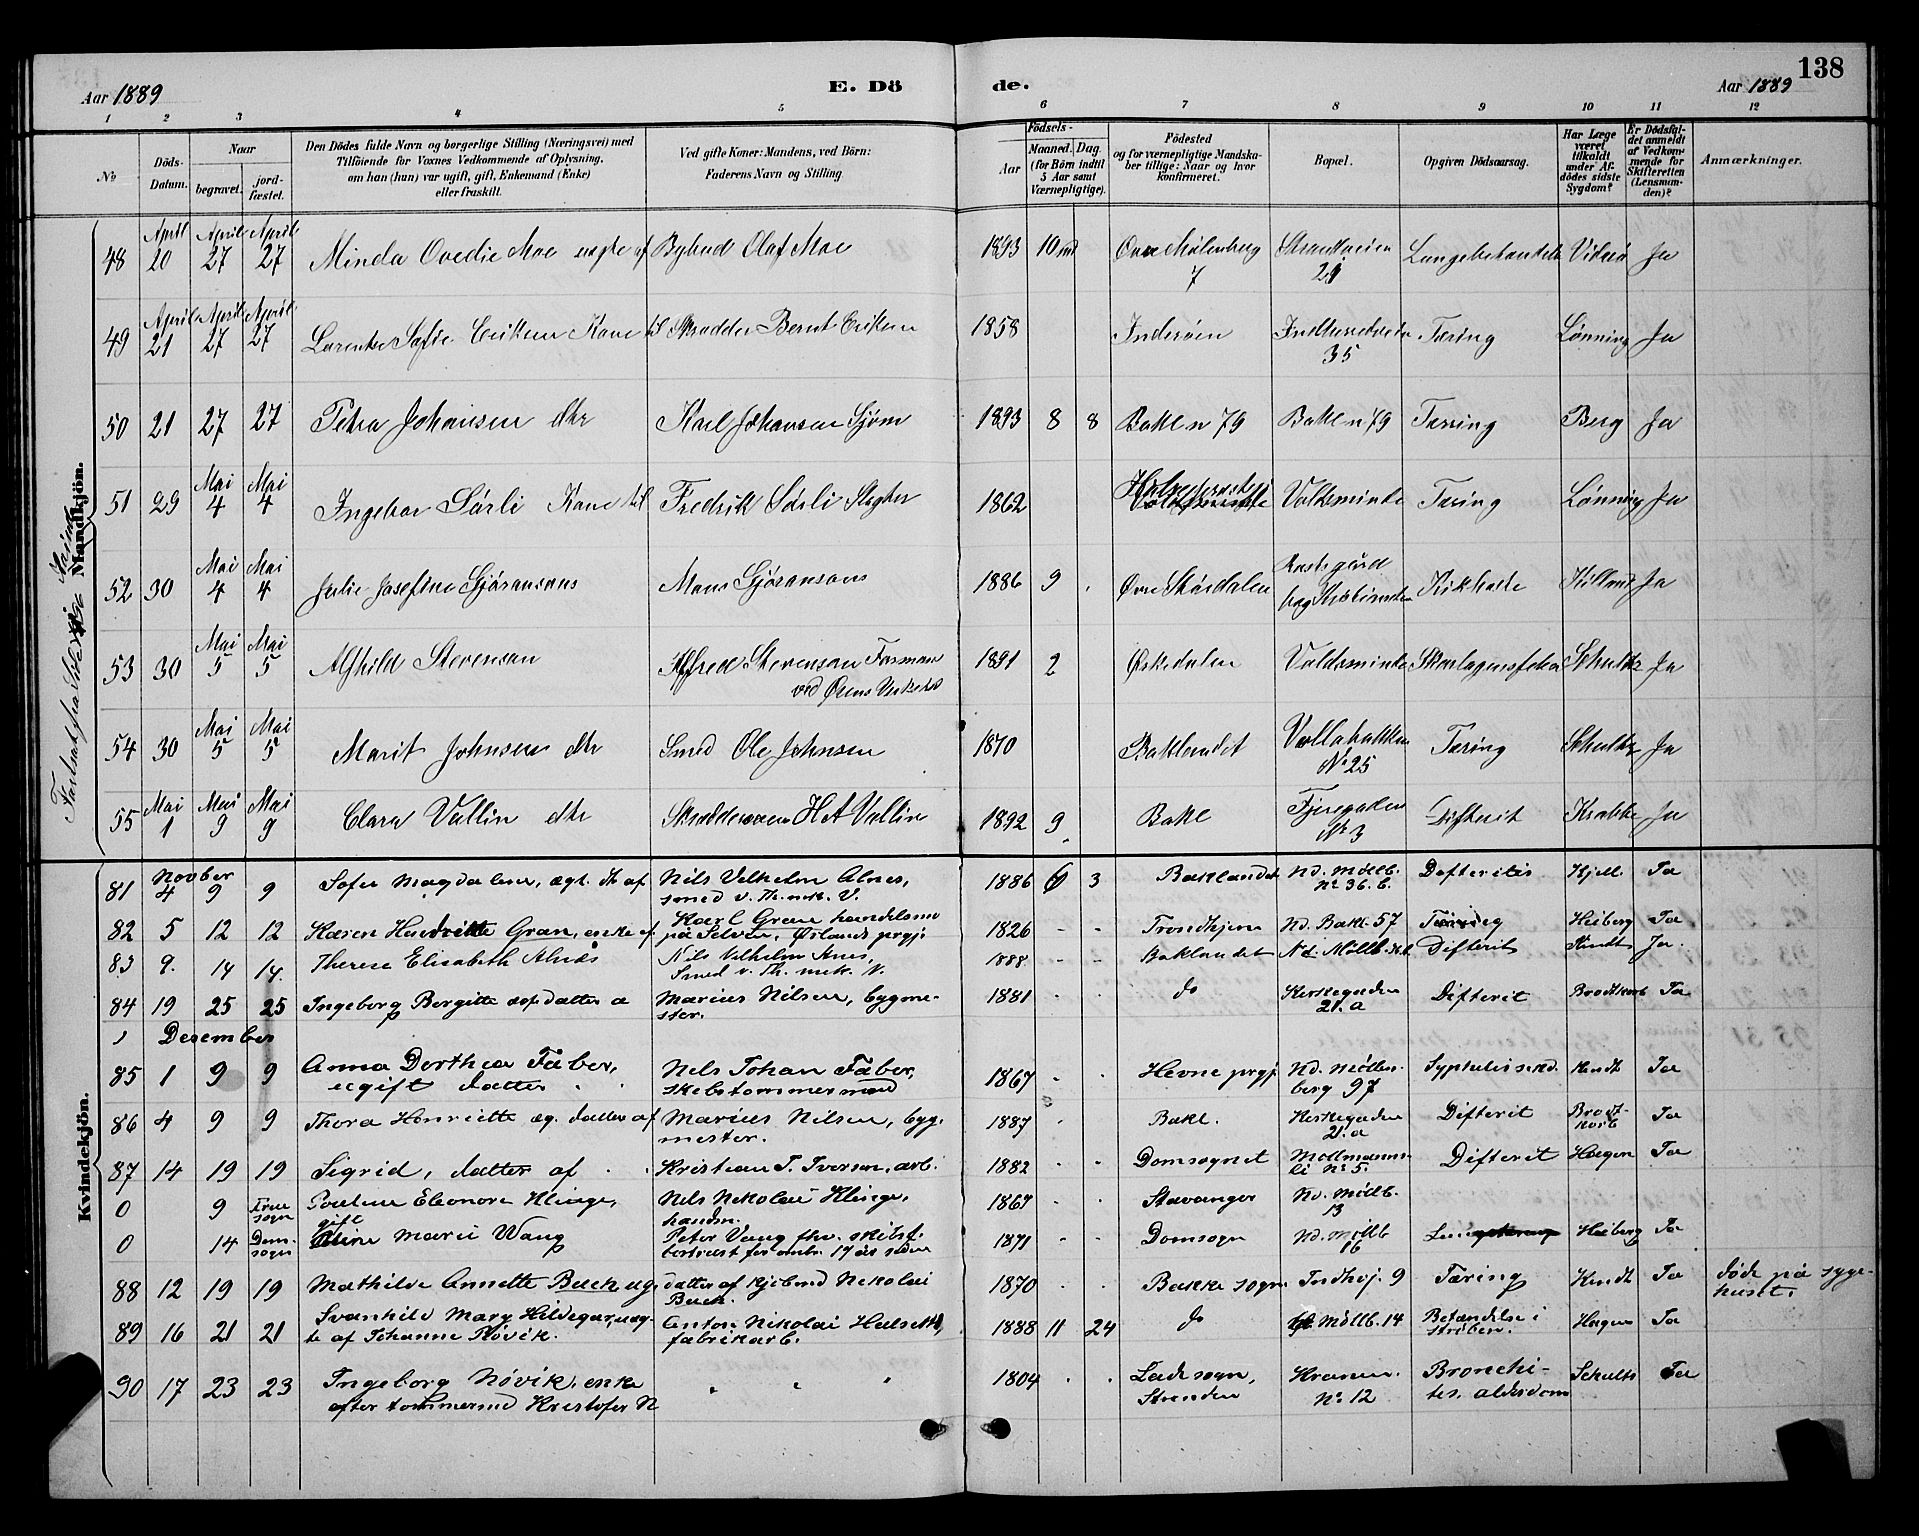 138
Aar 1889 E. Dö de. Aar 1889
1 2 3 4 5 6 7 8 9 10 11 12
No
Döds-Datum.
Naar
begravet. jord-fæstet.
Den Dödes fulde Navn og borgerlige Stilling (Næringsvei) med
Tilföiende for Voxnes Vedkommende af Oplysning,
om han (hun) var ugift, gift, Enkemand (Enke)
eller fraskilt.
Ved gifte Koner: Mandens, ved Börn:
Faderens Navn og Stilling
Födsels-
Aar
Maaned. Dag.
(for Börn indtil
5 Aar samt
Værnepligtige).
Födested
og for værnepligtige Mandska-
ber tillige: Naar og hvor
konfirmeret.
Bopæl.
Opgiven Dödsaarsag.
Har Læge
været
tilkaldt
under Af-
dödes sidste
Sygdom?
Er Dödsfal-
det anmeldt
af Vedkom-
mende for
Skifteretten
(Lensman-
den)?
Anmærkninger.
Mandkjön.
Kvindekjön.
48 April 20 April 27 April 27 Minda Ovedie Moe uegte af Bybud Olaf Moe 1893 10 Øvre Mølenberg 7 Strandveien 21 Ja
49 April 21 April 27 April 27 Lorentse Sofie Eriksen Kone til Skrædder Bernt Eriksen 1858 Inderøen 35 Tæring Lønning Ja
50 21 27 27 Petra Johansen dtr Karl Johansen Sjøm 1893 8 8 Bakl n 79 Bakl n 79 Tæring Berg Ja
51 29 Mai 4 Mai 4 Ingebor Sørli Kone til Fredrik Sørli 1862 Voldsminde Tæring Lønning Ja
52 30 Mai 4 Mai 4 Julie Josefine Sjøransons Mons Sjøransons 1886 9 Øvre Skjørdalen Kikhoste Ja
53 30 Mai 5 Mai 5 Alfhild Stevenson Alfred Stevenson Formann
ved Ørens 1891 2 Voldsminde Skarlagensfeber Schultz Ja
54 30 Mai 5 Mai 5 Marit Johnsen dtr Smed Ole Johnsen 1870 Baklandet Vollabakken No 25 Tæring Schultz Ja
55 Mai 1 Mai 9 Mai 9 Clara Vallin dtr H A Vallin 1892 9 Bakl Fjæregaden No 3 Difterit Krabbe Ja
81 Novber 4 9 9 Sofie Magdalene, ægt. dtr af Nils Vilhelm Alnes,
smed v. Th. mek. V. 1886 3 Baklandet Nd. Møllb. No 36. b. Difteritis Hjell. Ja
82 5 12 12 Karen Hendrikke Gran, enke af Karl Gran handelsm
på Selven, Ørlands prgj. 1826 - - Trondhjem Nd. Bakl. 57 Tæring Heiberg Ja
83 9. 14 14. Therese Elisabeth Alnæs Nils Vilhelm Alnes,
Smed v. Th. mek. V. 1888. - - Baklandet Nd. Møllb. Difterit Kindt Ja.
84 19 25 25 Ingeborg Bergitte datter a Marius Nilsen, bygme-
ster. 1881 do Kirkegaden 21. a Difterit Brodtkorb Ja
Desember
85 1 9 9 Anna Dorthea Faber,
ugift datter Nils Johan Faber,
skibstømmermand 1867 Hevne prgj. Nd. Møllen-
berg 97 Kindt Ja
86 4 9 9 Thora Henriette æg. datter af Marius Nilsen, byg.
mester. 1887 Bakl. Kirkegaden 21. a Difterit Brodt-
korb Ja
87 14 19 19 Sigrid, datter af Kristian T. Iversen, arb. 1882 Domsognet Møllmanns-
li No 5. Difterit Hagen Ja
0 9 Frue
sogn Pouline Eleonora Klinge,
gift Nils Nikolai Klinge,
handm. 1867 Stavanger Nd. Møllb.
13
0 14 Dom-
sogn Marie Wang Peter Vang fhv. skibsf.
1871 Domsogn Nd. Møllb
16 Heiberg Ja
88 12 19 19 Mathilde Annette Buch ug. datter af kjøbmd Nikolai
Buch. 1870 Bakke sogn Indhøj. 9 Tæring Kindt Ja døde på syge-
huset.
89 16 21 21 Svanhild Mary Hildegar, uæg-
te af Johanne Røvik. Anton Nikolai Halseth,
fabrikarb. 1888 11 24 do Møllb. 14 Betændelse i
Struben. Hagen Ja
90 17 23 23 Ingeborg Nøvik, enke
efter tømmermd Kristofer N " " " 1804 Lade sogn,
Stranden No 12 Bronchi-
tis, alderdom Schultz Ja